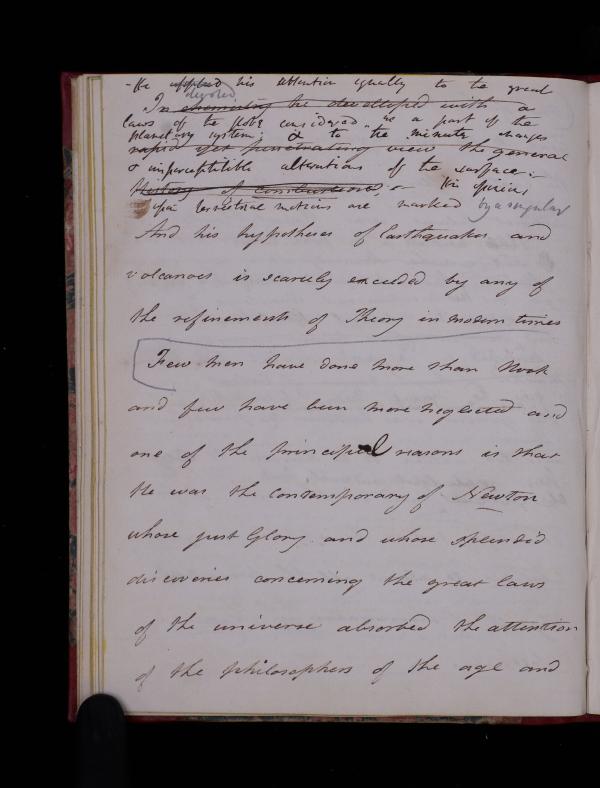 - He applied his attention equally to the great
devoted
In chemistry he developed with a
laws of the Globe considered as a part of the
planetary system; & to the minute changes
rapid yet penetrating view the general
& imperceptible alterations of the surface. -
History of combustion, - His opinions
upon terrestrial motions are marked by a singular
And his hypotheses of Earthquakes and
volcanoes is scarcely exceeded by any of
the refinements of Theory in modern times
Few men have done more than Hook
and few have been more neglected and
one of the principal reasons is that
He was the contemporary of Newton
whose just Glory and whose splendid
discoveries concerning the great laws
of the universe absorbed the attention
of the philosophers of the age and